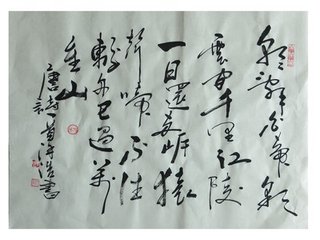 朝辭白帝彩
雲間千里江陵
一日還兩岸猿
聲啼不住
輕舟已過萬
重山
唐詩一首 浩書